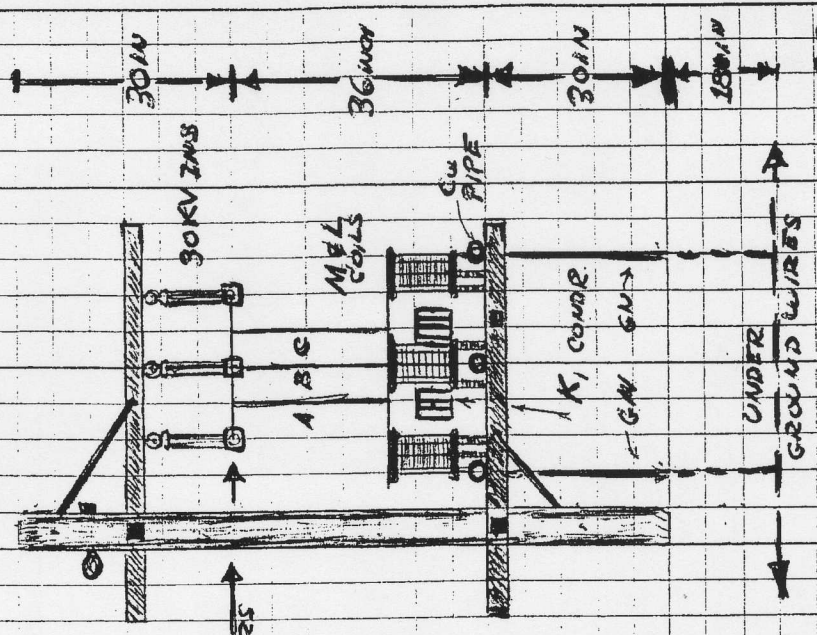 30 IN
36 IN
30 IN
18 IN
30KV INS
M & L
COILS
CU
PIPE
A B C
K, CONDR
GW GW
UNDER
GROUND WIRES